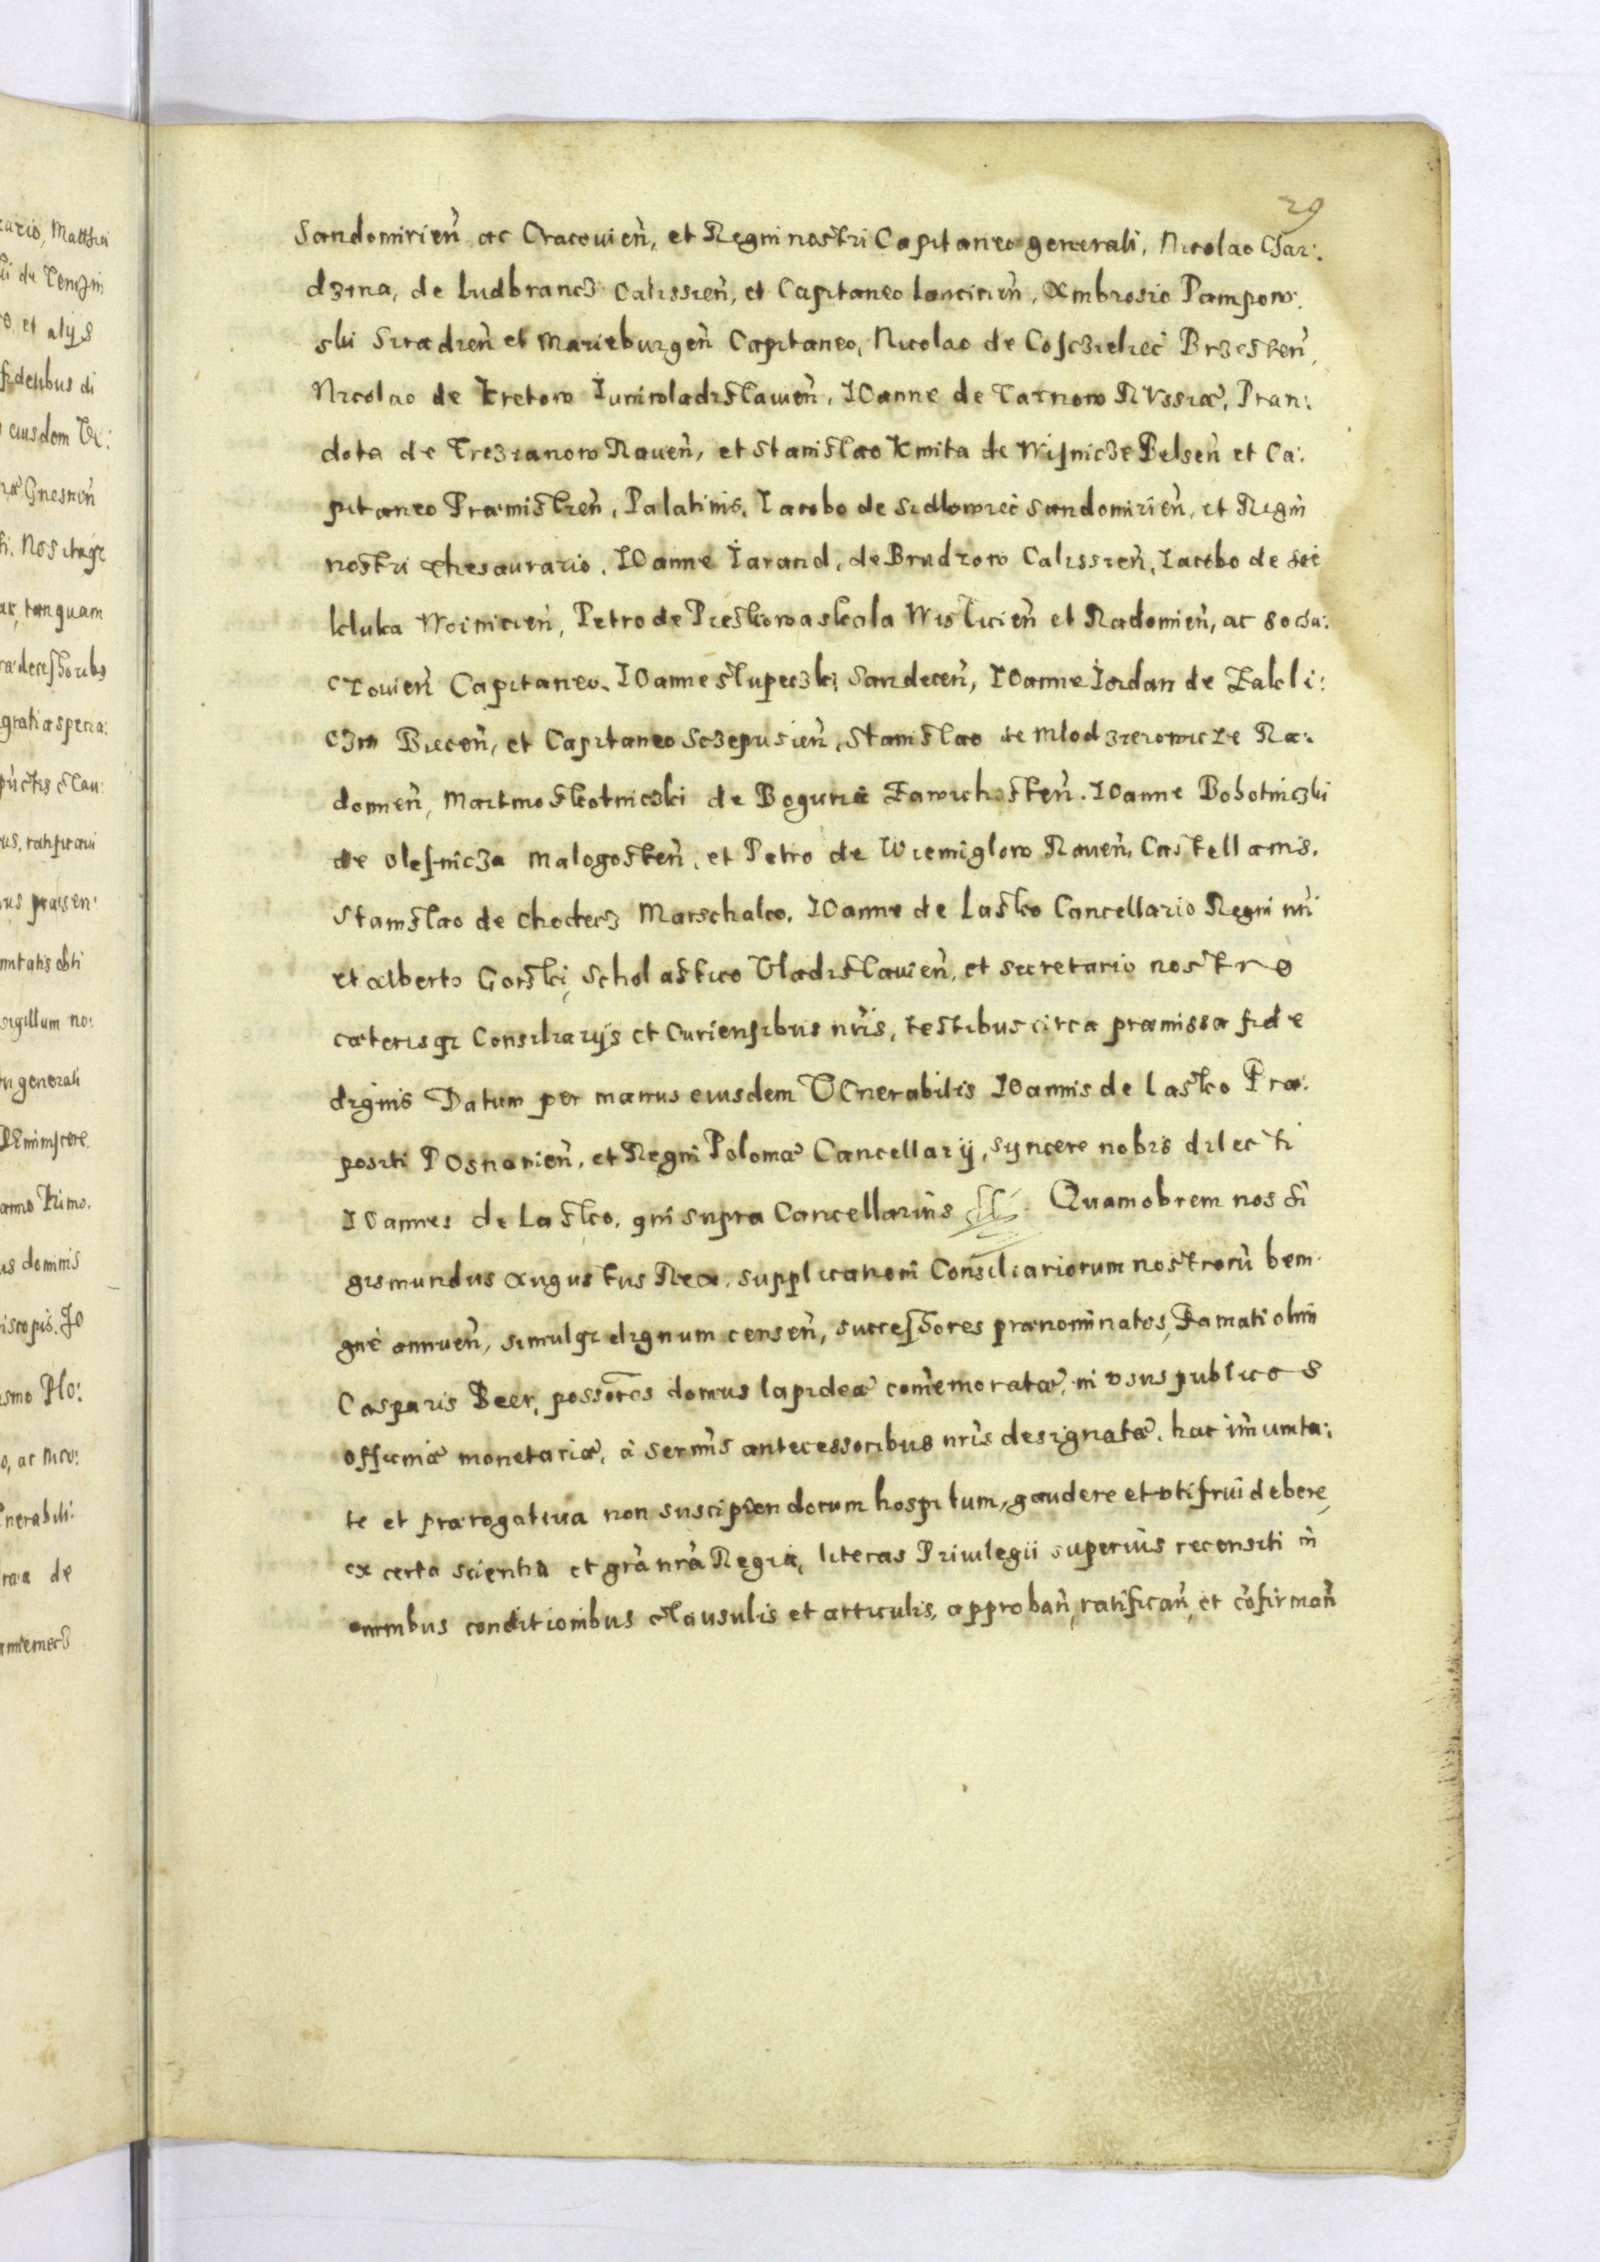 29
Sandomirien̄ ac Cracouien̄, et Regni nostri Capitaneo generali, Nicolao Gar:
dzina, de Ludbrancz Calissien̄, et Capitaneo Lancicien̄, Ambrosio Pampow:
ski Siradien̄ et Marieburgen̄ Capitaneo, Nicolao de Cosczieliec Brzesten̄,
Nicolao de Kretow Iuniwladislauien̄, IOanne de Tarnow RVssiæ, Pran:
dota de Trczianow Rauen̄, et Stanislao Kmita de Wisnicze Belsen̄ et Ca:
pitaneo Præmislien̄, Palatinis, Iacobo de Sidlowiec Sandomirien̄, et Regni
nostri thesaurario, IOanne Iarand, de Brudzow Calissien̄, Iacobo de Sie
kluka Woinicien̄, Petro de Pieskowaskala Wislicien̄ et Radomien̄, ac Socha:
czouien̄ Capitaneo, IOanne Slupeczki Sandecen̄, IOanne Iordan de Zakli:
czin Biecen̄, et Capitaneo Sczepusien̄, Stanislao de Mlodzieiowicze Ra:
domien̄, Martino Skotniczki de Boguria Zawichosten̄. IOanne Bobotniczki
de Olesnicza Malogosten̄, et Petro de Wiemiglow Rauen̄, Castellanis.
Stanislao de Chodecz Marschalco, IOanne de Lasko Cancellario Regni nr̄i
et Alberto Gorski, Scholastico Vladislauien̄, et secretario nostro
cæterisq; Consiliarijs et Curiensibus nr̄is, testibus circa præmissa fide
dignis Datum per manus eiusdem VEnerabilis IOannis de Lasko Præ:
positi POsnanien̄, et Regni Poloniæ Cancellarij, syncere nobis dilecti
IOannes de Lasko, qui supra Cancellarius sst. Quamobrem nos Si
gismundus Augustus Rex, supplicationi Consiliariorum nostrorū beni
gne annuen̄, simulq; dignum censen̄, successores prænominatos, Famati olim
Casparis Beer, possores domus lapideæ com̄emoratæ, in vsus publicos
officinæ monetariæ, à serm̄is antecessoribus nr̄is designatæ, hac im̄unita:
te et prærogatiua non suscipiendorum hospitum, gaudere et vtifrui debere,
ex certa scientia et grā nr̄a Regia, literas Priuilegii superius recensiti in
omnibus conditionibus clausulis et articulis, approban̄, ratifican̄, et cōfirman̄